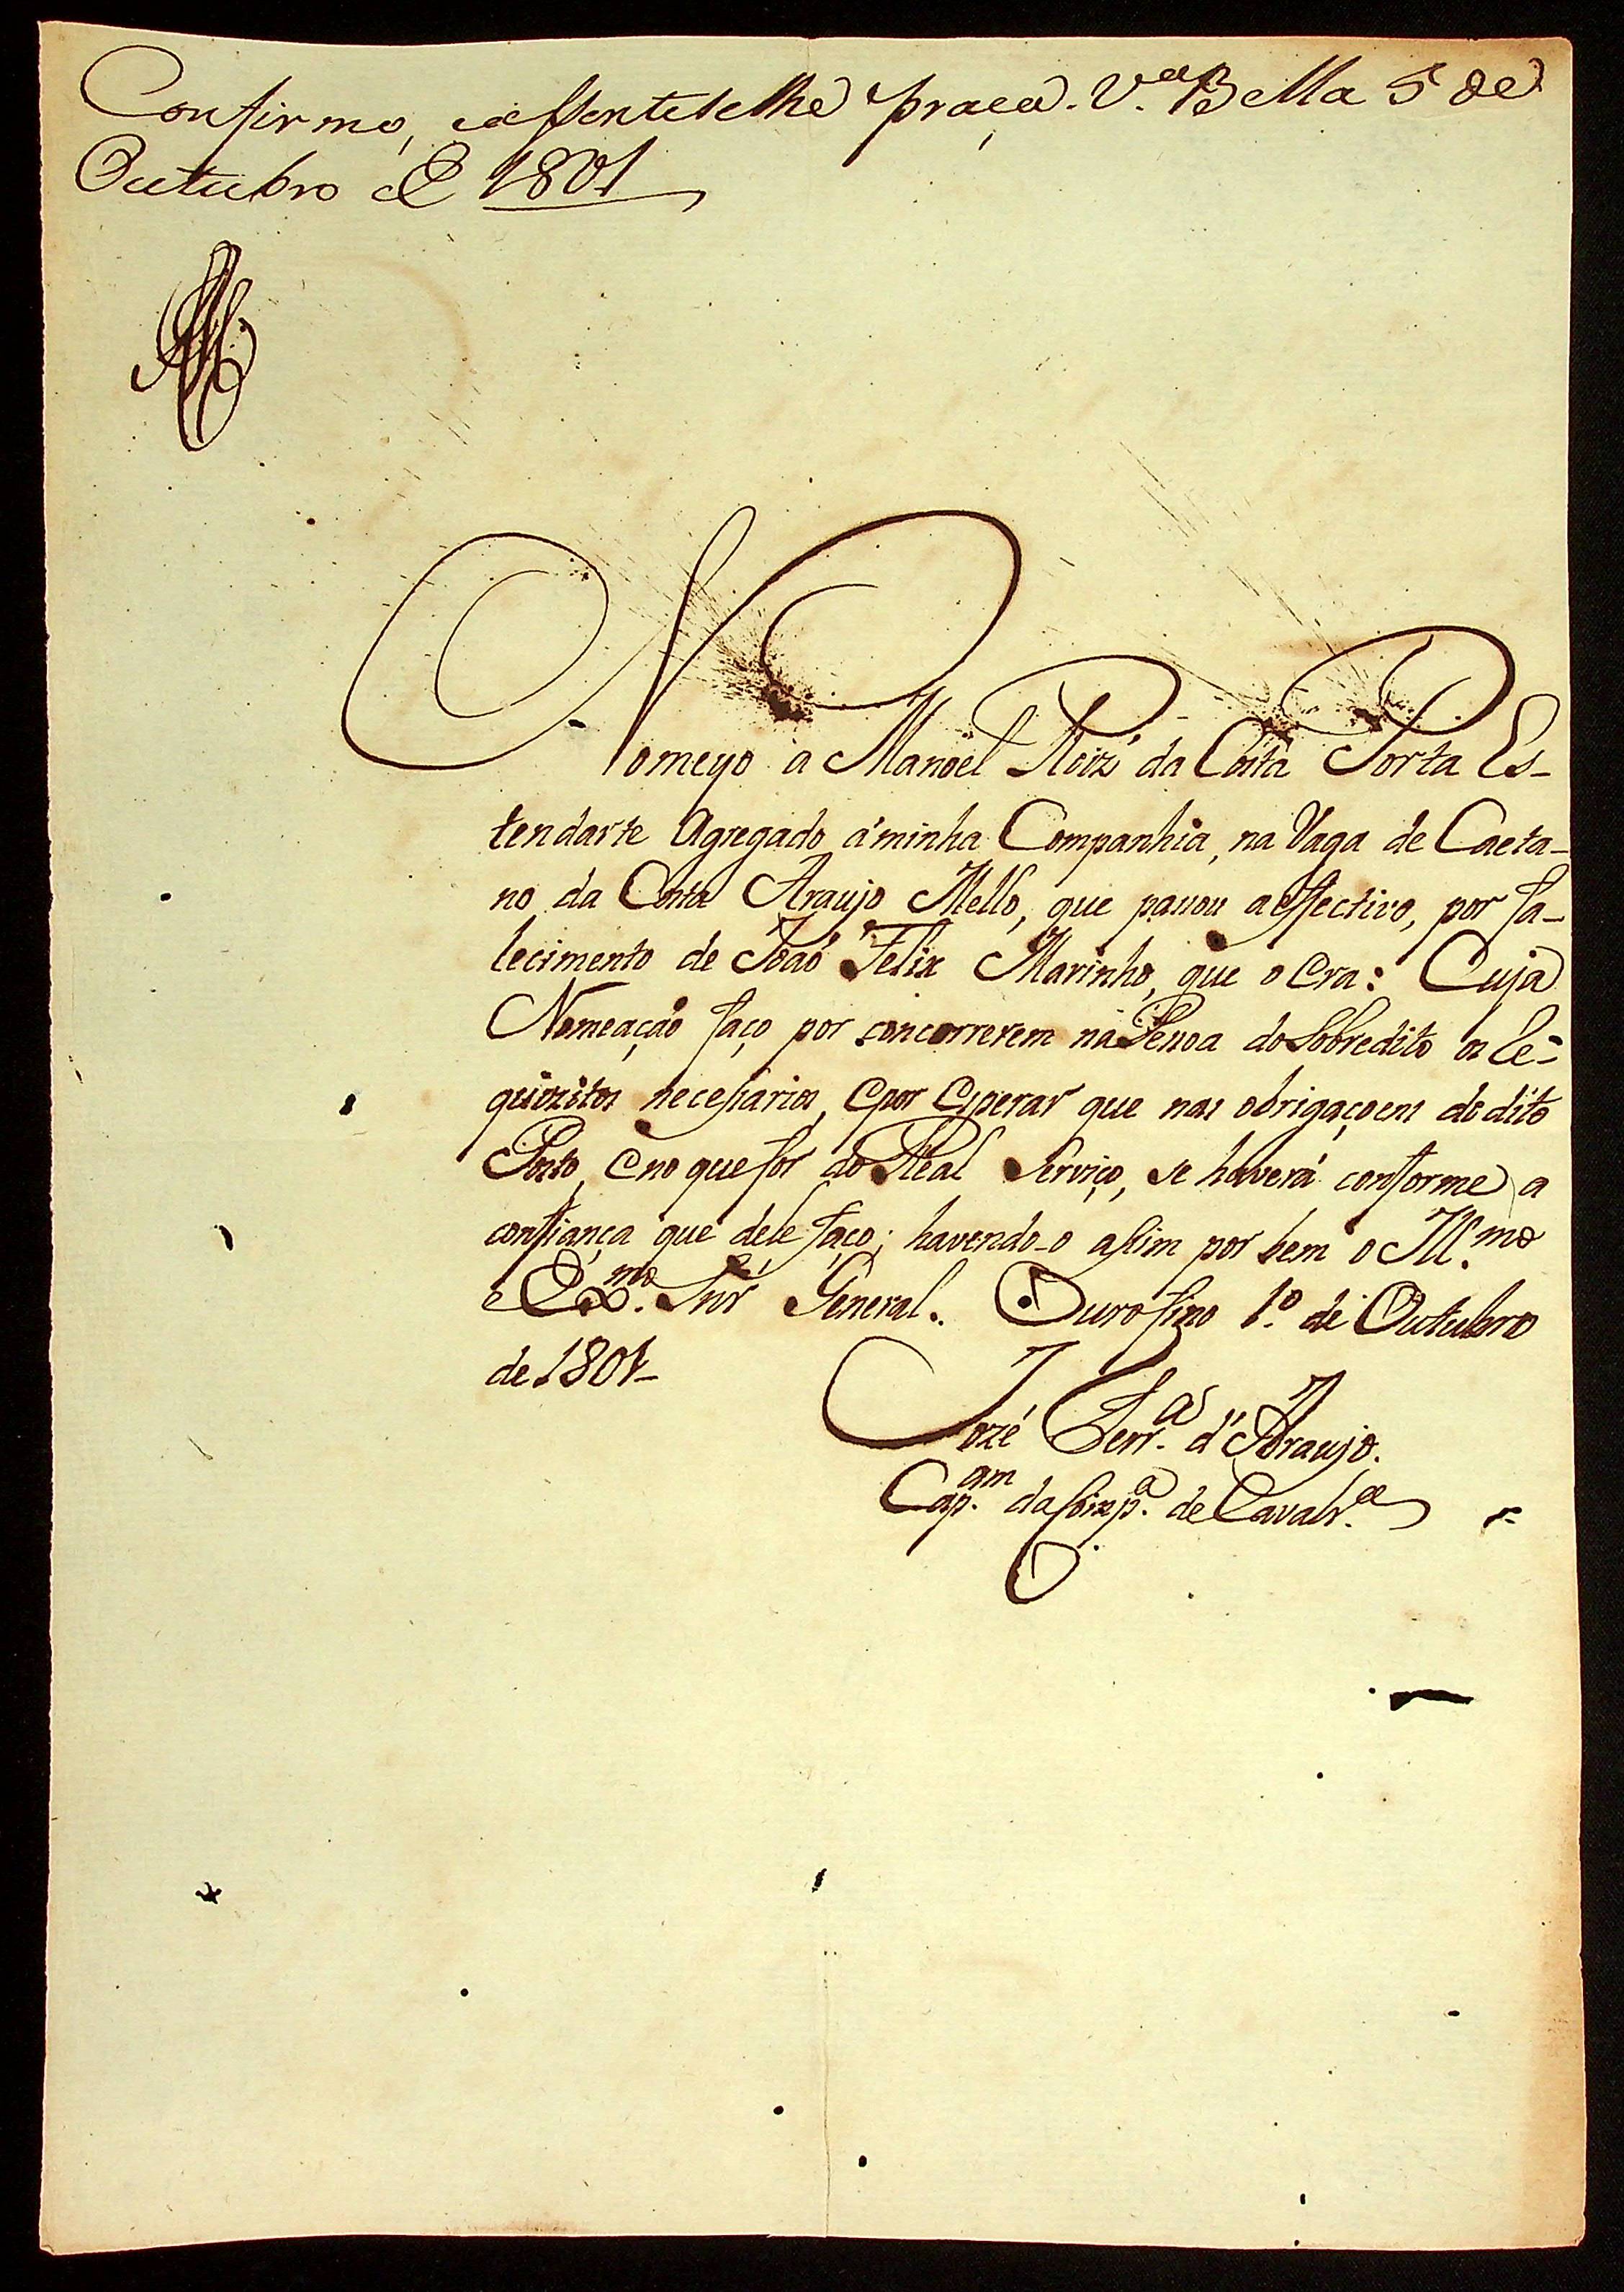 Confirmo, eassenteselhe praça. V.ª Bella 5 de
Outubro de 1801
Nomeyo a Manoel Roiz' da Costa Porta Es-
tendarte Agregado á minha Companhia, na Vaga de Caeta-
no da Costa Araujo Mello, que passou a effectivo, por fa-
lecimento de João Felix Marinho, que o era: Cuja
Nomeação faço por concorrerem na Pessoa do Sobredito os Re-
quizitos necessarios, e por esperar que nas obrigaçoens do dito
Posto, e no que for do Real Serviço, se haverá conforme a
confiança que dele faço; havendo-o assim por bem o Ill.mo
e Ex.mo Snr' General. Ouro fino 1.º de Outubro
de 1801-
Jozé d'Araujo.
Cap.am da Comp.ª de Cavalr.ª